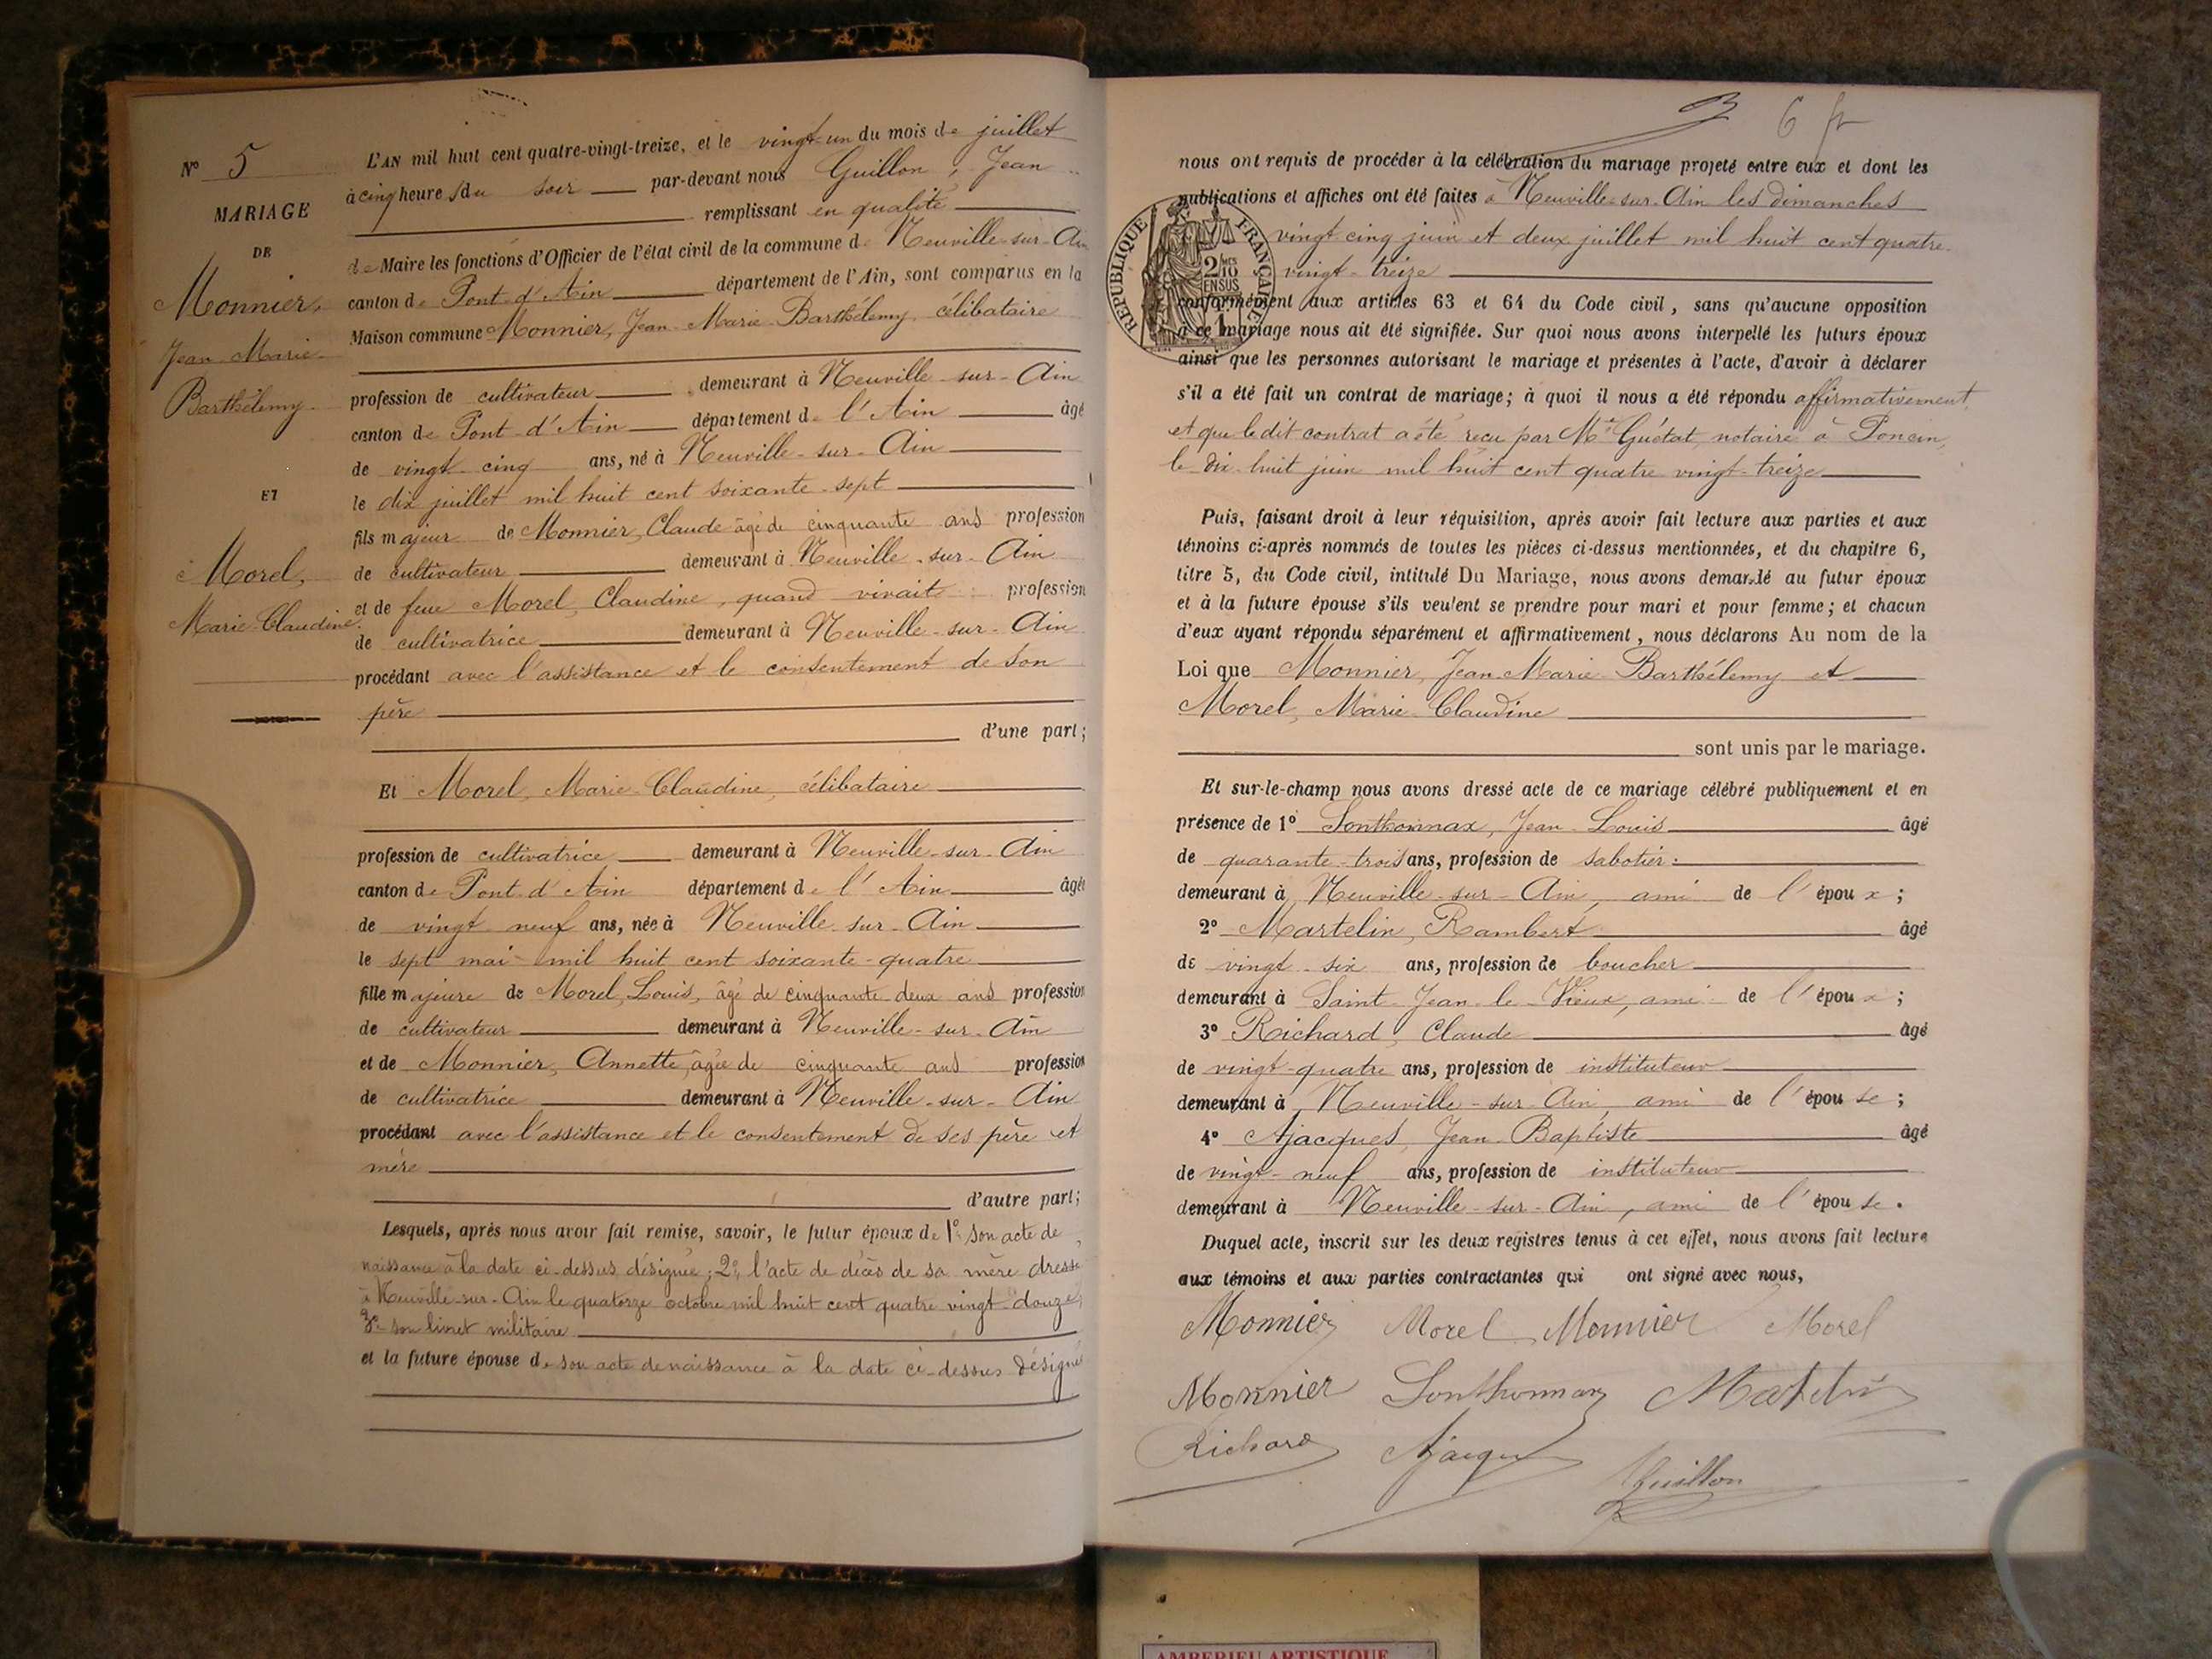 N° 5
MARIAGE
DE
Monnier,
Jean Marie
Barthélemy.
ET
Morel,
Marie Claudine.
L'AN mil huit cent quatre-vingt-treize, et le vingt-un du mois de juillet
à cinq heures du soir par-devant nous Guillon, Jean
remplissant en qualité
de Maire les fonctions d'Officier de l'état civil de la commune de Neuville-sur-Ain
canton de Pont-d'Ain département de l'Ain, sont comparus en la
Maison commune Monnier, Jean Marie Barthélemy célibataire
profession de cultivateur demeurant à Neuville-sur-Ain
canton de Pont-d'Ain département de l'Ain âgé
de vingt cinq ans, né à Neuville-sur-Ain
le dix juillet mil huit cent soixante-sept
fils majeur de Monnier, Claude âgé de cinquante ans profession
de cultivateur demeurant à Neuville-sur-Ain
et de feue Morel, Claudine, quand vivait profession
de cultivatrice demeurant à Neuville-sur-Ain
procédant avec l'assistance et le consentement de son
père
d'une part;
Et Morel, Marie Claudine, célibataire
profession de cultivatrice demeurant à Neuville-sur-Ain
canton de Pont d'Ain département de l'Ain âgée
de vingt neuf ans, née à Neuville-sur-Ain
le sept mai mil huit cent soixante-quatre
fille majeure de Morel, Louis, âgé de cinquante deux ans profession
de cultivateur demeurant à Neuville-sur-Ain
et de Monnier, Annette, âgée de cinquante ans profession
de cultivatrice demeurant à Neuville-sur-Ain
procédant avec l'assistance et le consentement de ses père et
mère
d'autre part;
Lesquels, après nous avoir fait remise, savoir, le futur époux de 1° son acte de
naissance à la date ci-dessus désignée; 2° l'acte de décès de sa mère dressé
à Neuville-sur-Ain le quatorze octobre mil huit cent quatre vingt-douze;
3° son livret militaire
et la future épouse de son acte de naissance à la date ci-dessus désignée
6 fr
nous ont requis de procéder à la célébration du mariage projeté entre eux et dont les
publications et affiches ont été faites à Neuville-sur-Ain les dimanches
vingt-cinq juin et deux juillet mil huit cent quatre-
vingt-treize
RÉPUBLIQUE FRANÇAISE
2/10 EN SUS
conformément aux articles 63 et 64 du Code civil, sans qu'aucune opposition
à ce mariage nous ait été signifiée. Sur quoi nous avons interpellé les futurs époux
ainsi que les personnes autorisant le mariage et présentes à l'acte, d'avoir à déclarer
s'il a été fait un contrat de mariage; à quoi il nous a été répondu affirmativement,
et que le dit contrat a été reçu par Me Guétat, notaire à Poncin,
le dix-huit juin mil huit cent quatre vingt-treize
Puis, faisant droit à leur réquisition, après avoir fait lecture aux parties et aux
témoins ci-après nommés de toutes les pièces ci-dessus mentionnées, et du chapitre 6,
titre 5, du Code civil, intitulé Du Mariage, nous avons demandé au futur époux
et à la future épouse s'ils veulent se prendre pour mari et pour femme; et chacun
d'eux ayant répondu séparément et affirmativement, nous déclarons Au nom de la
Loi que Monnier, Jean Marie Barthélemy et
Morel, Marie Claudine
sont unis par le mariage.
Et sur-le-champ nous avons dressé acte de ce mariage célébré publiquement et en
présence de 1° Sonthonnax, Jean-Louis âgé
de quarante-trois ans, profession de sabotier.
demeurant à Neuville-sur-Ain, ami de l'époux;
2° Martelin, Rambert âgé
de vingt-six ans, profession de boucher
demeurant à Saint-Jean-le-Vieux, ami de l'époux;
3° Richard, Claude âgé
de vingt-quatre ans, profession de instituteur
demeurant à Neuville-sur-Ain, ami de l'épouse;
4° Ajacques, Jean-Baptiste âgé
de vingt-neuf ans, profession de instituteur
demeurant à Neuville-sur-Ain, ami de l'épouse.
Duquel acte, inscrit sur les deux registres tenus à cet effet, nous avons fait lecture
aux témoins et aux parties contractantes qui ont signé avec nous,
Monnier Morel Monnier Morel
Monnier Sonthonnax Martelin
Richard Ajacques
Guillon
AMBERIEU ARTISTIQUE